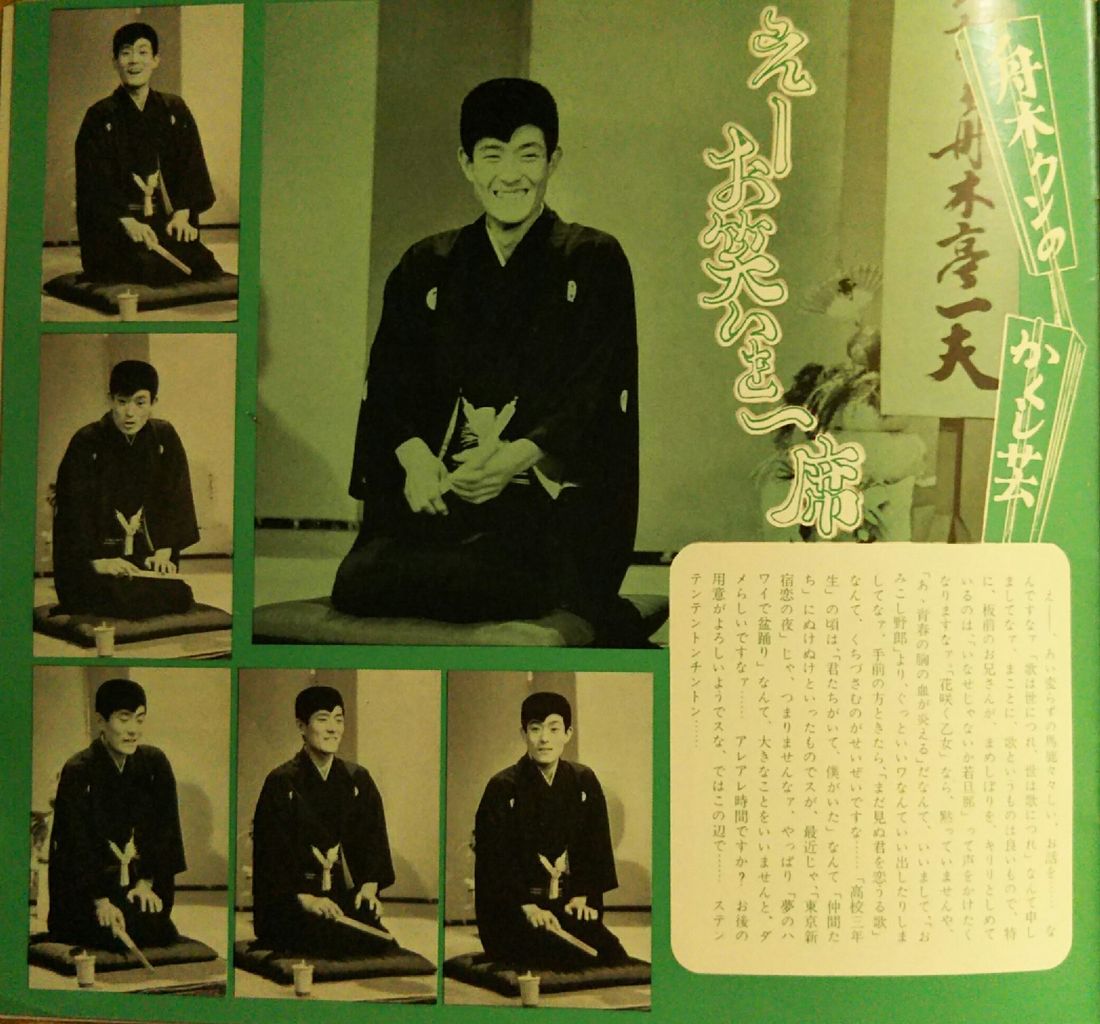 舟木クンの
かくし芸
舟木亭一夫
えーお笑いを一席
えー、あい変らずの馬鹿々々しい、お話を な
んですなァ「歌は世につれ、世は歌につれ」なんて申し
ましてなァ、まことに、歌というものは良いもので、特
に、板前のお兄さんが、まめしぼりを、キリリとしめて
いるのは、「いなせじゃないか若旦那」って声をかけたく
なりますなァ。「花咲く乙女」なら、黙っていませんや、
「あゝ青春の胸の血が炎える」だなんて、いいまして、「お
みこし野郎」より、ぐっといいワなんていい出したりしま
してなァ。手前の方ときたら、「まだ見ぬ君を恋うる歌」
なんて、くちづさむのがせいぜいですな…… 「高校三年
生」の頃は、「君たちがいて、僕がいた」なんて「仲間た
ち」にぬけぬけといったものでスが、最近じゃ、「東京新
宿恋の夜」じゃ、つまりませんなァ、やっぱり「夢のハ
ワイで盆踊り」なんて、大きなことをいいませんと、ダ
メらしいですなァ…… アレアレ時間ですか? お後の
用意がよろしいようでスな、ではこの辺で…… ステン
テンテントンチントン……